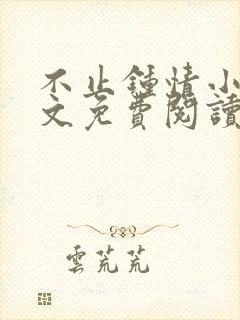 不止鍾情小
文免費閱讀
雲茺茺